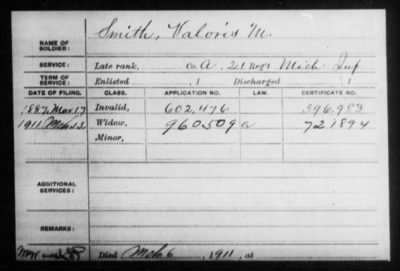 NAME OF SOLDIER: Smith, Valoris M.
SERVICE: Late rank, Co. A, 21 Reg't Mich. Inf
TERM OF SERVICE: Enlisted , 1 Discharged , 1
DATE OF FILING. CLASS. APPLICATION NO. LAW. CERTIFICATE NO.
1887, Mar. 17 Invalid, 602,476 396,983
1911, Mch 13. Widow, 960509 a 721894
Minor,
ADDITIONAL SERVICES:
REMARKS:
Died Mch 6, 1911, at